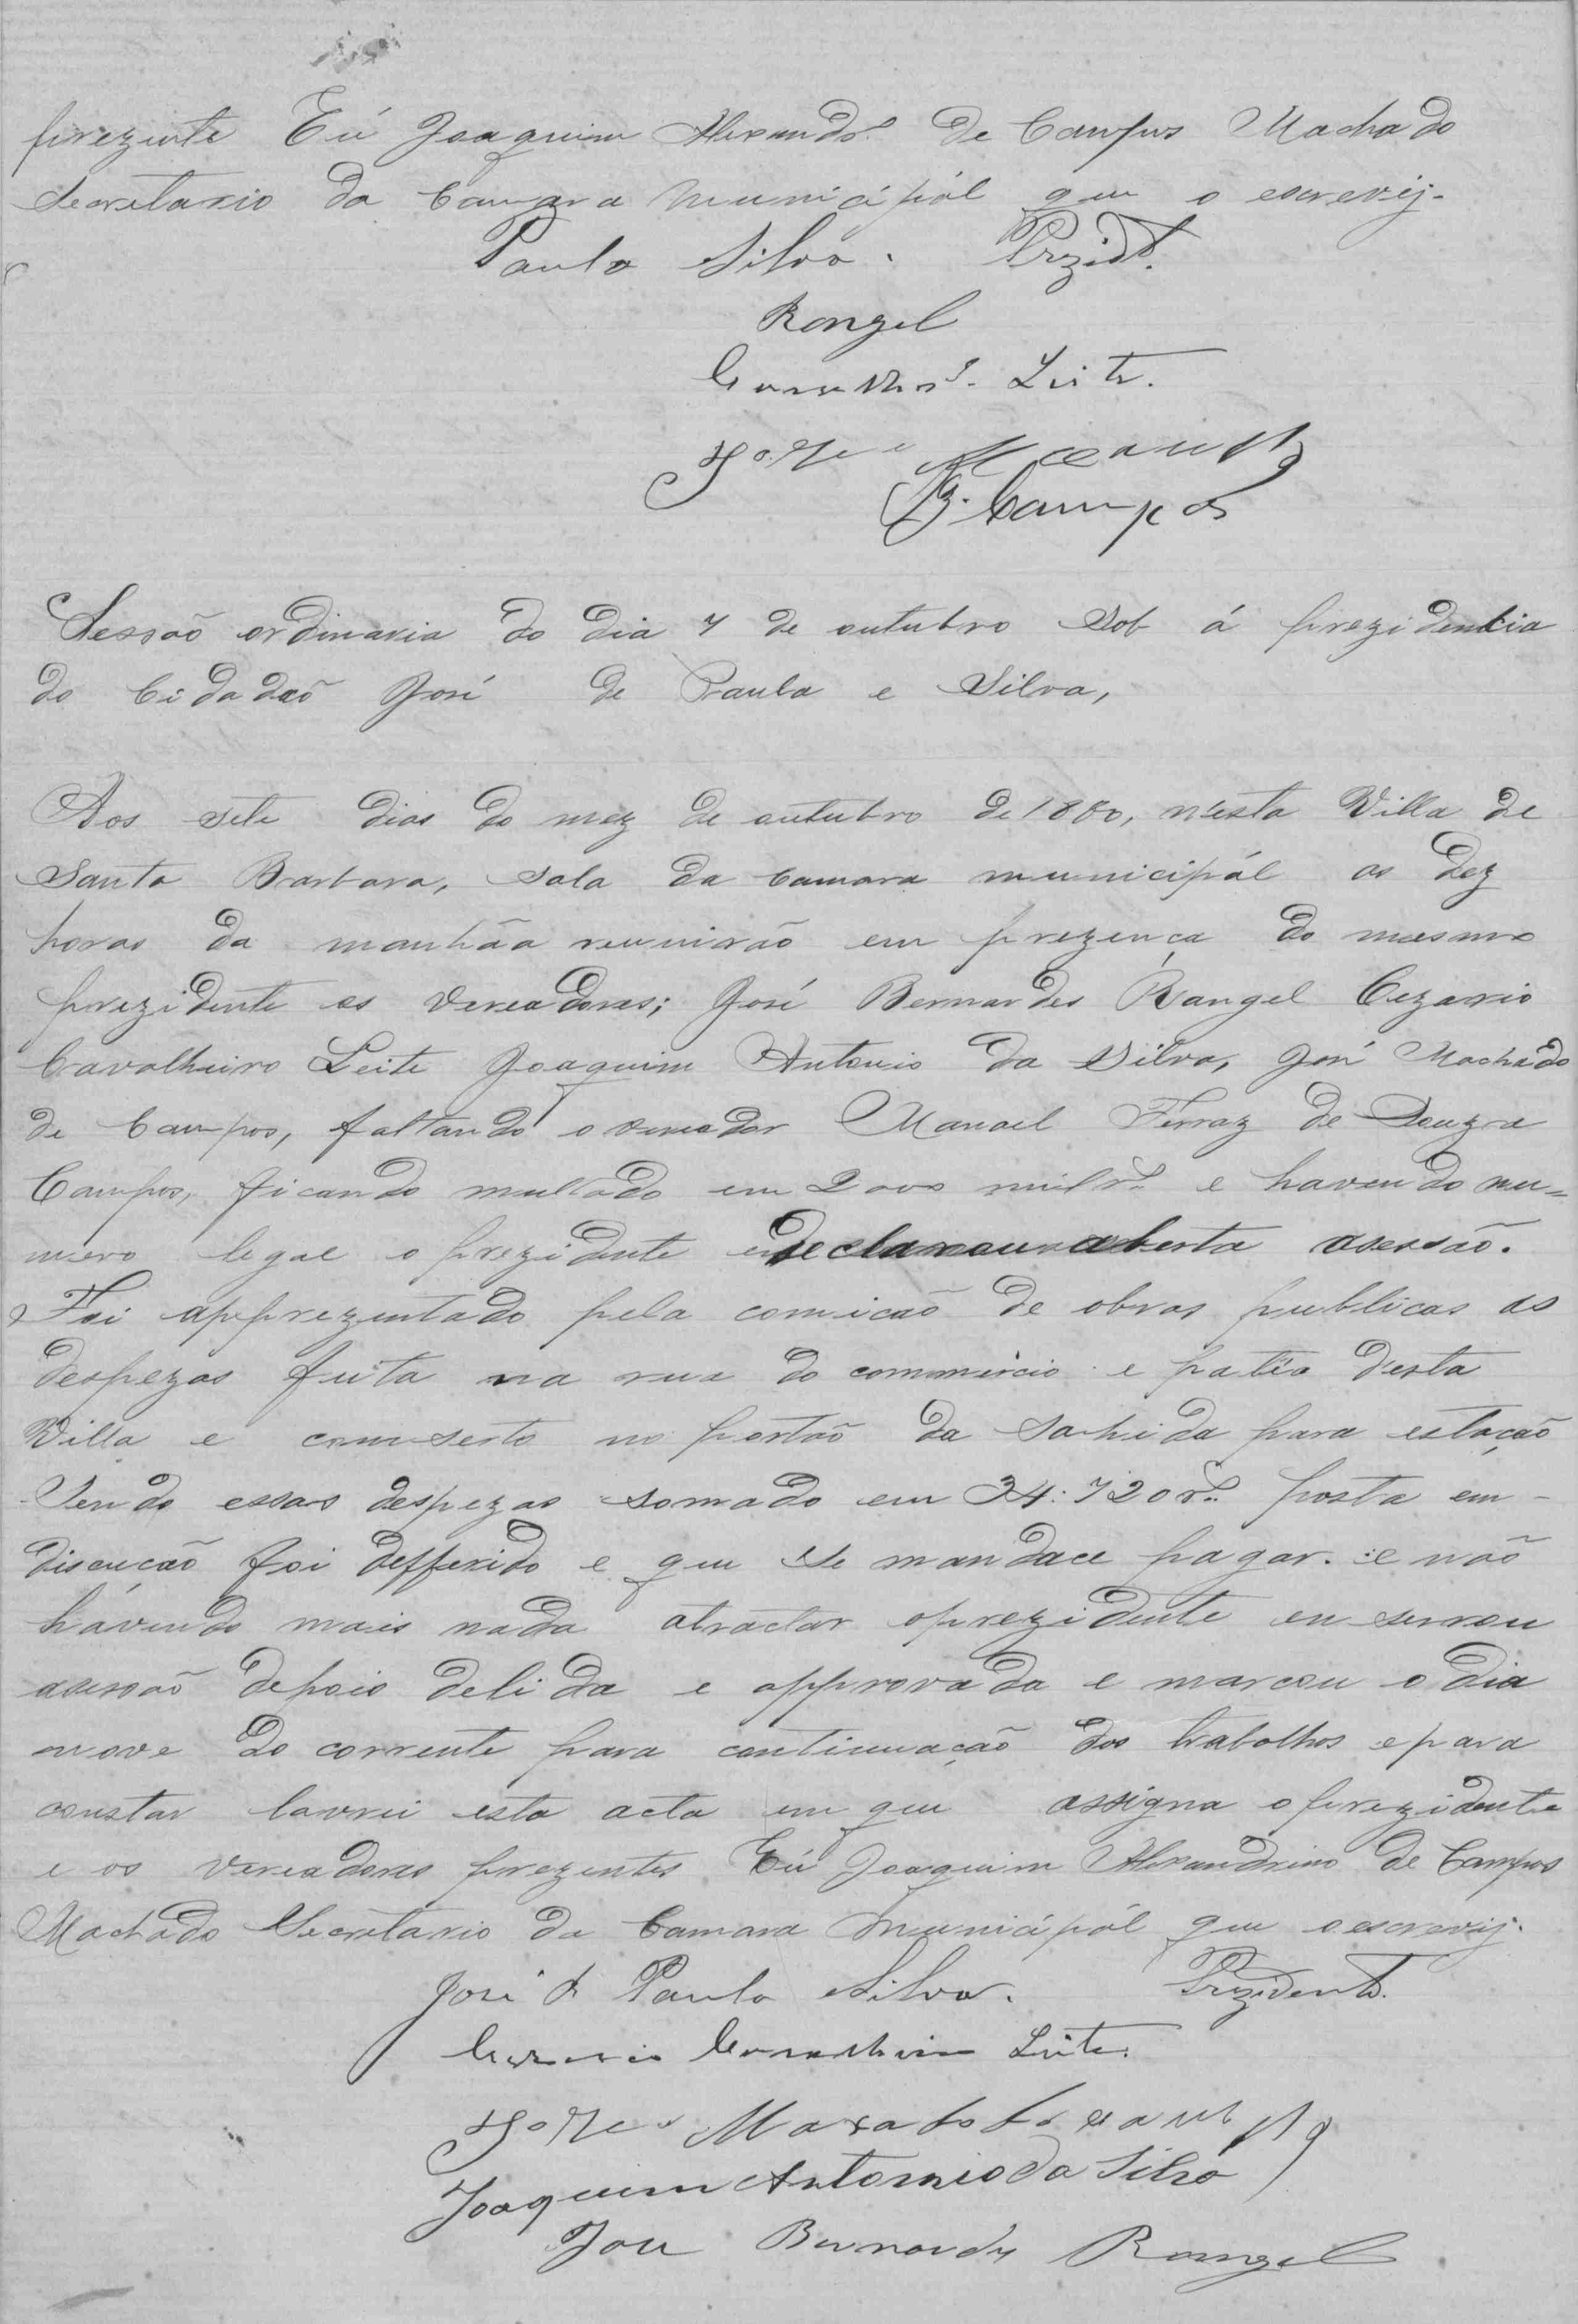 prezente Eú Joaquim Alexandr.º de Campos Machado
Secretario da Camara municipál que o escrevij.
Paula Silva. Prezid.te
Rangel
Cavalhr.º Leite.
José M Campos
B. Campos
Sessaõ ordinaria do dia 7 de outubro Sob á prezidencia
do Cidadaõ José de Paula e Silva,
Aos sete dias do mez de outubro de 1880, n'esta Villa de
Santa Barbara, Sala da Camara municipál as dez
horas da manhãa reunirão em prezença do mesmo
prezidente os Vereadores; José Bernardes Rangel Cezario
Cavalheiro Leite Joaquim Antonio da Silva, José Machado
de Campos, faltando o vereador Manoel Ferraz de Souza
Campos, ficando multado em 2000 mil r.s e havendo nu=
mero legal o prezidente declarou aberta asessão.
Foi apprezentado pela comicaõ de obras publicas as
despezas feita na rua do commercio e patêo desta
Villa e comserto no portão da Sahida para estação
Sendo essas despezas somado em 34:720 r.s posta em
discucaõ foi defferido e que se mandace pagar. e não
havendo mais nada atractar oprezidente enserrou
asessaõ depois delida e approvada e marcou o dia
nove do corrente para continuação dos trabalhos e para
constar lavrei esta acta em que assigna o prezidente
e os vereadores prezentes Eú Joaquim Alexandrino de Campos
Machado Secretario da Camara municipál que oescrevij.
José de Paula Silva. Prezidente.
Cezario Cavalheiro Leite.
José Maxado de Campos
Joaquim Antonio da Silva
José Bernardes Rangel